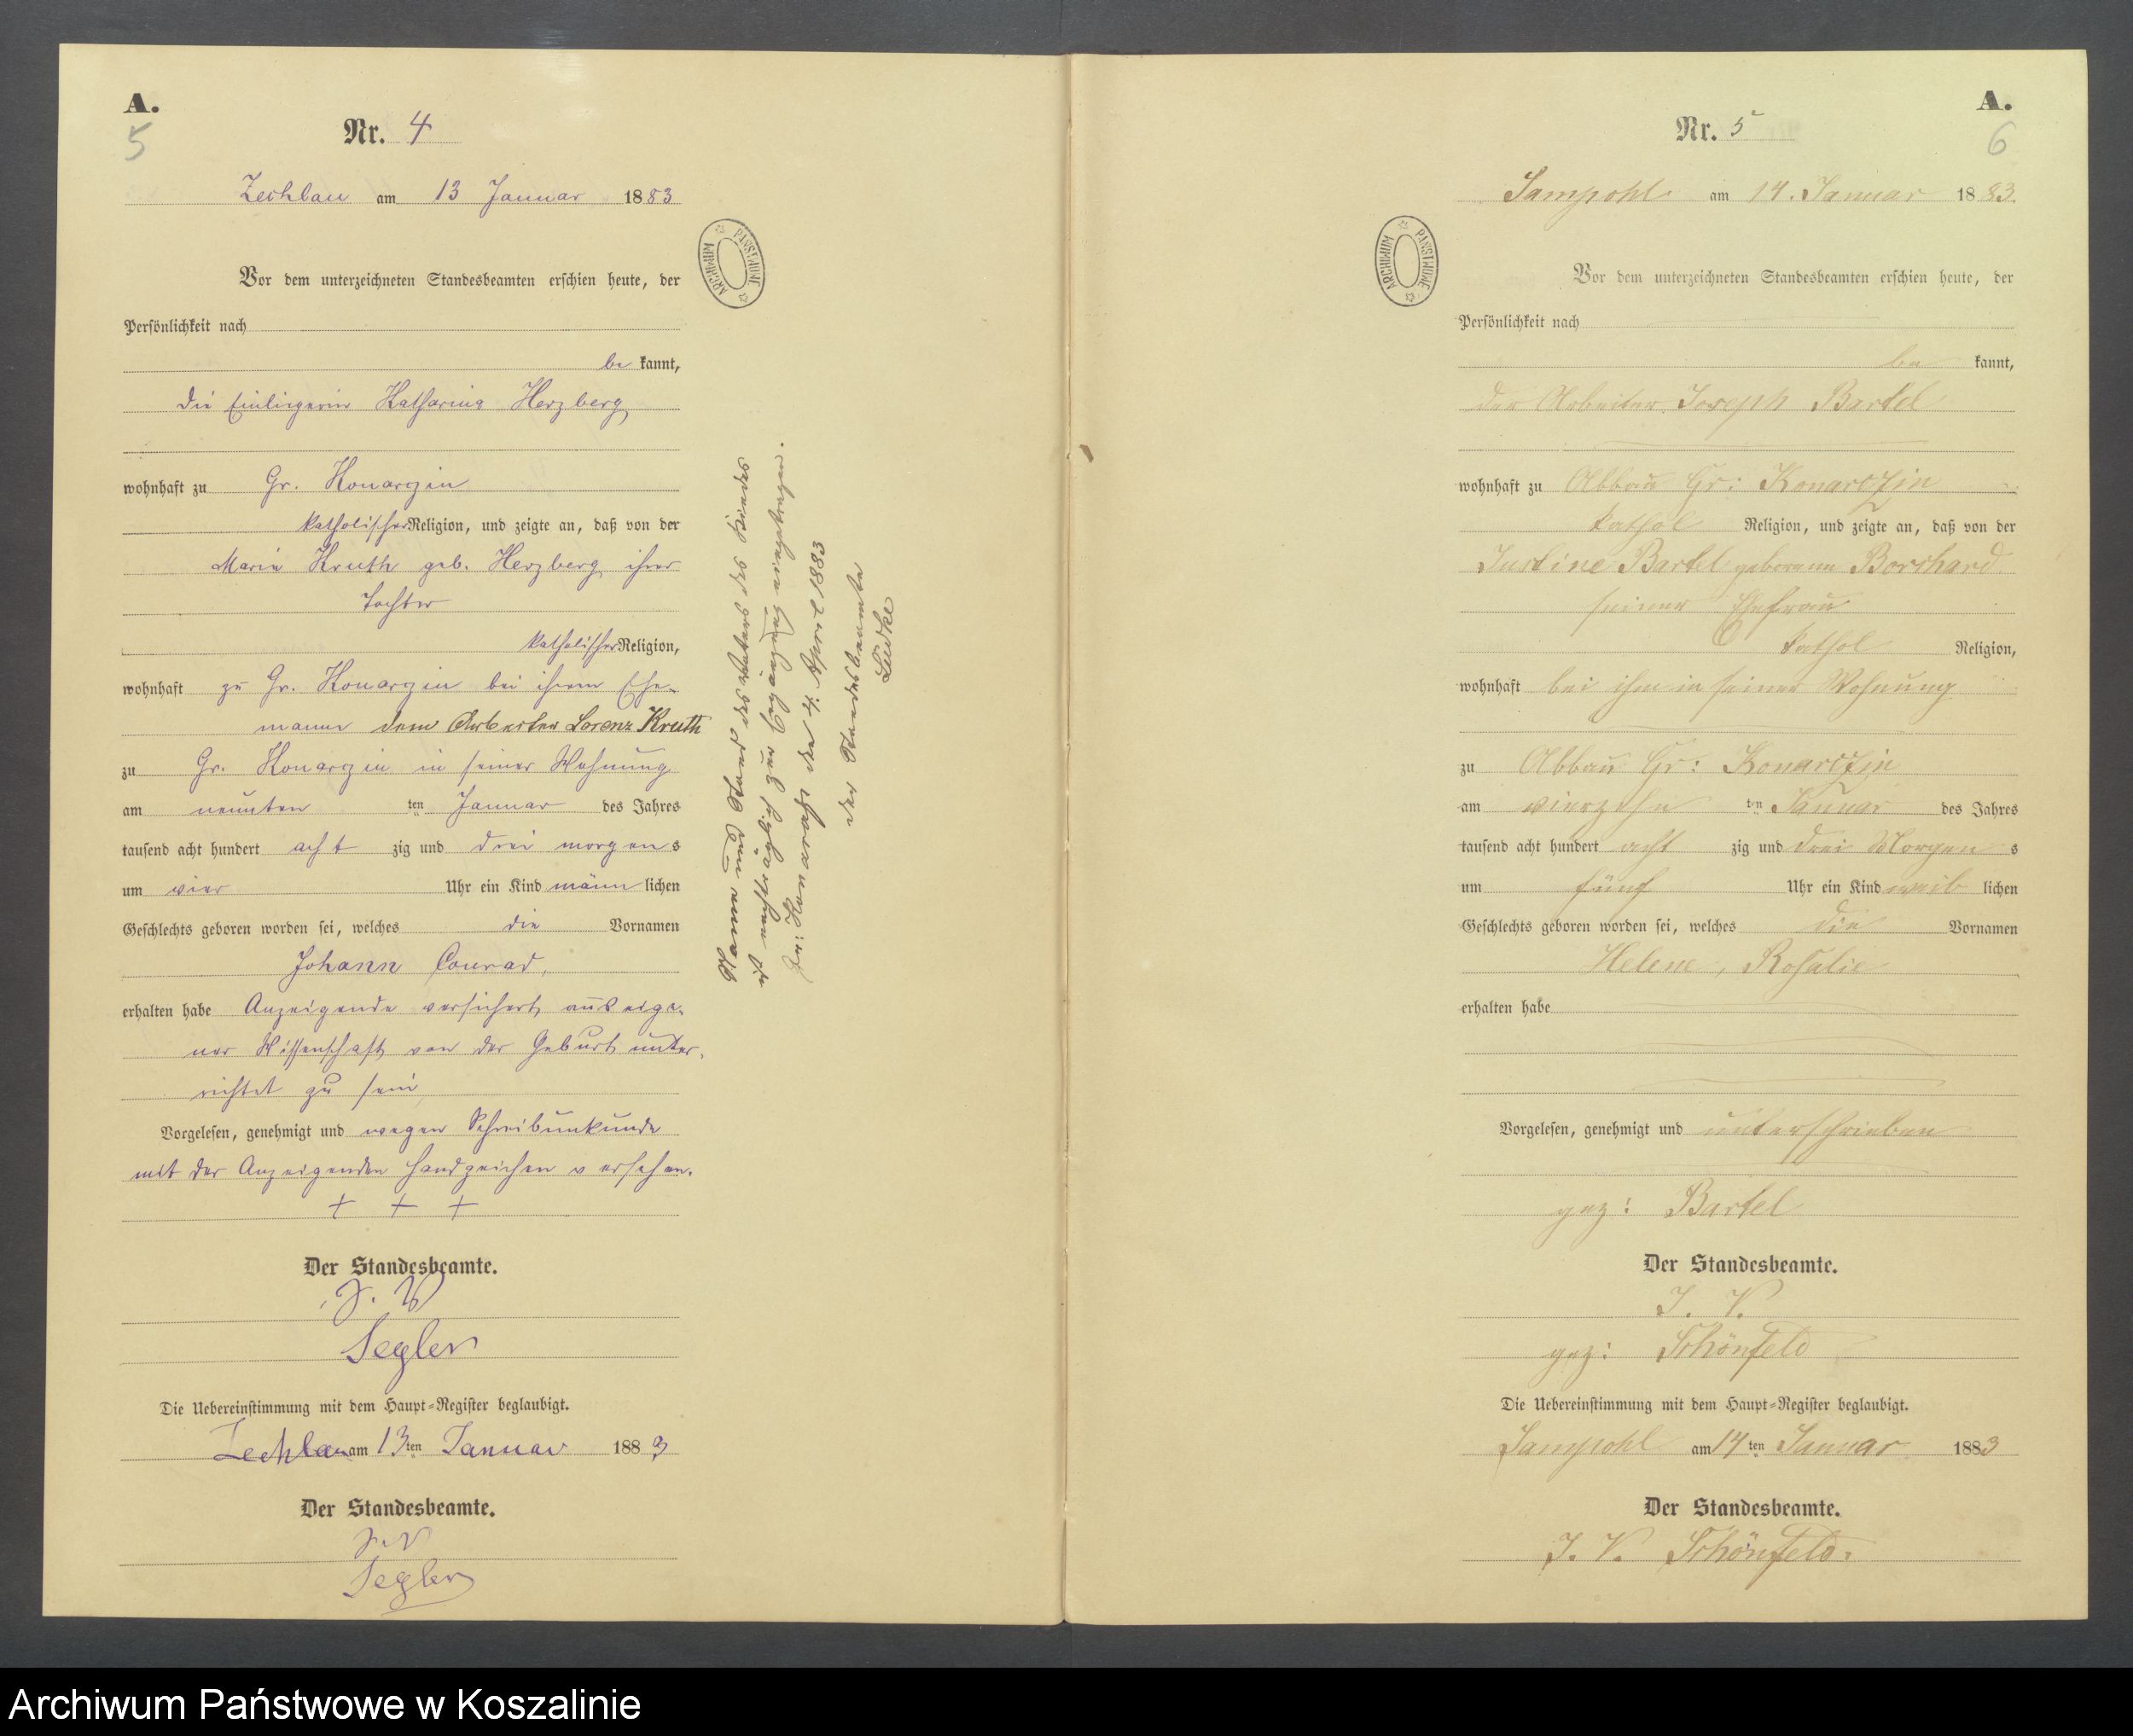 A.
5
Nr. 4
Zechlau am 13 Januar 1883
Vor dem unterzeichneten Standesbeamten erschien heute, der
Persönlichkeit nach
be kannt,
die Einligerin Katharina Herzberg
wohnhaft zu Gr. Konarczin
katholischer Religion, und zeigte an, daß von der
Maria Kruth geb. Herzberg ihrer
Tochter
katholischer Religion,
wohnhaft zu Gr. Konarczin bei ihrem Ehe-
manne dem Arbeiter Lorenz Kruth
zu Gr. Konarczin in seiner Wohnung
am neunten ten Januar des Jahres
tausend acht hundert acht zig und drei morgens
um vier Uhr ein Kind männ lichen
Geschlechts geboren worden sei, welches die Vornamen
Johann Conrad,
erhalten habe Anzeigende versichert, aus eige-
ner Wissenschaft von der Geburt unter-
richtet zu sein
Vorgelesen, genehmigt und wegen Schreibunkunde
mit der Anzeigenden Handzeichen versehen.
+ + +
Der Standesbeamte.
J. V
Segler
Die Uebereinstimmung mit dem Haupt-Register beglaubigt.
Zechlau am 13ten Januar 1883
Der Standesbeamte.
J. V
Segler
Name und Stand des Vaters des Kindes
ist nachträglich zur Ergänzung eingetragen.
Gr: Konarczin den 4. April 1883
der Standesbeamte
Lüdke
ARCHIWUM PAŃSTWOWE
A.
6
Nr. 5
Sampohl am 14. Januar 1883.
ARCHIWUM PAŃSTWOWE
Vor dem unterzeichneten Standesbeamten erschien heute, der
Persönlichkeit nach
be kannt,
der Arbeiter Joseph Bartel
wohnhaft zu Abbau Gr: Konarczin
kathol Religion, und zeigte an, daß von der
Justine Bartel geborenen Borchard
seiner Ehefrau
kathol Religion,
wohnhaft bei ihm in seiner Wohnung
zu Abbau Gr: Konarczin
am vierzehn ten Januar des Jahres
tausend acht hundert acht zig und drei Morgens
um fünf Uhr ein Kind weib lichen
Geschlechts geboren worden sei, welches die Vornamen
Helene, Rosalie
erhalten habe
Vorgelesen, genehmigt und unterschrieben
gez: Bartel
Der Standesbeamte.
J. V.
gez: Schönfeld
Die Uebereinstimmung mit dem Haupt-Register beglaubigt.
Sampohl am 14ten Januar 1883
Der Standesbeamte.
J. V. Schönfeld.
Archiwum Państwowe w Koszalinie